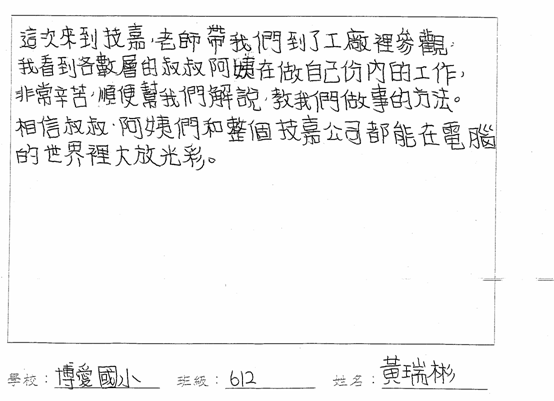 這次來到技嘉,老師帶我們到了工廠裡參觀,
我看到各數層的叔叔阿姨在做自己份內的工作,
非常辛苦,順便幫我們解說,教我們做事的方法。
相信叔叔、阿姨們和整個技嘉公司都能在電腦
的世界裡大放光彩。
學校:博愛國小 班級:612 姓名:黃瑞彬